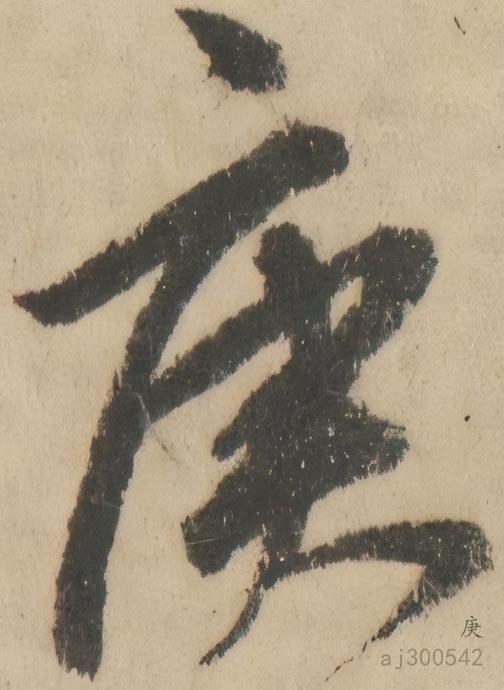 庚
庚
aj300542